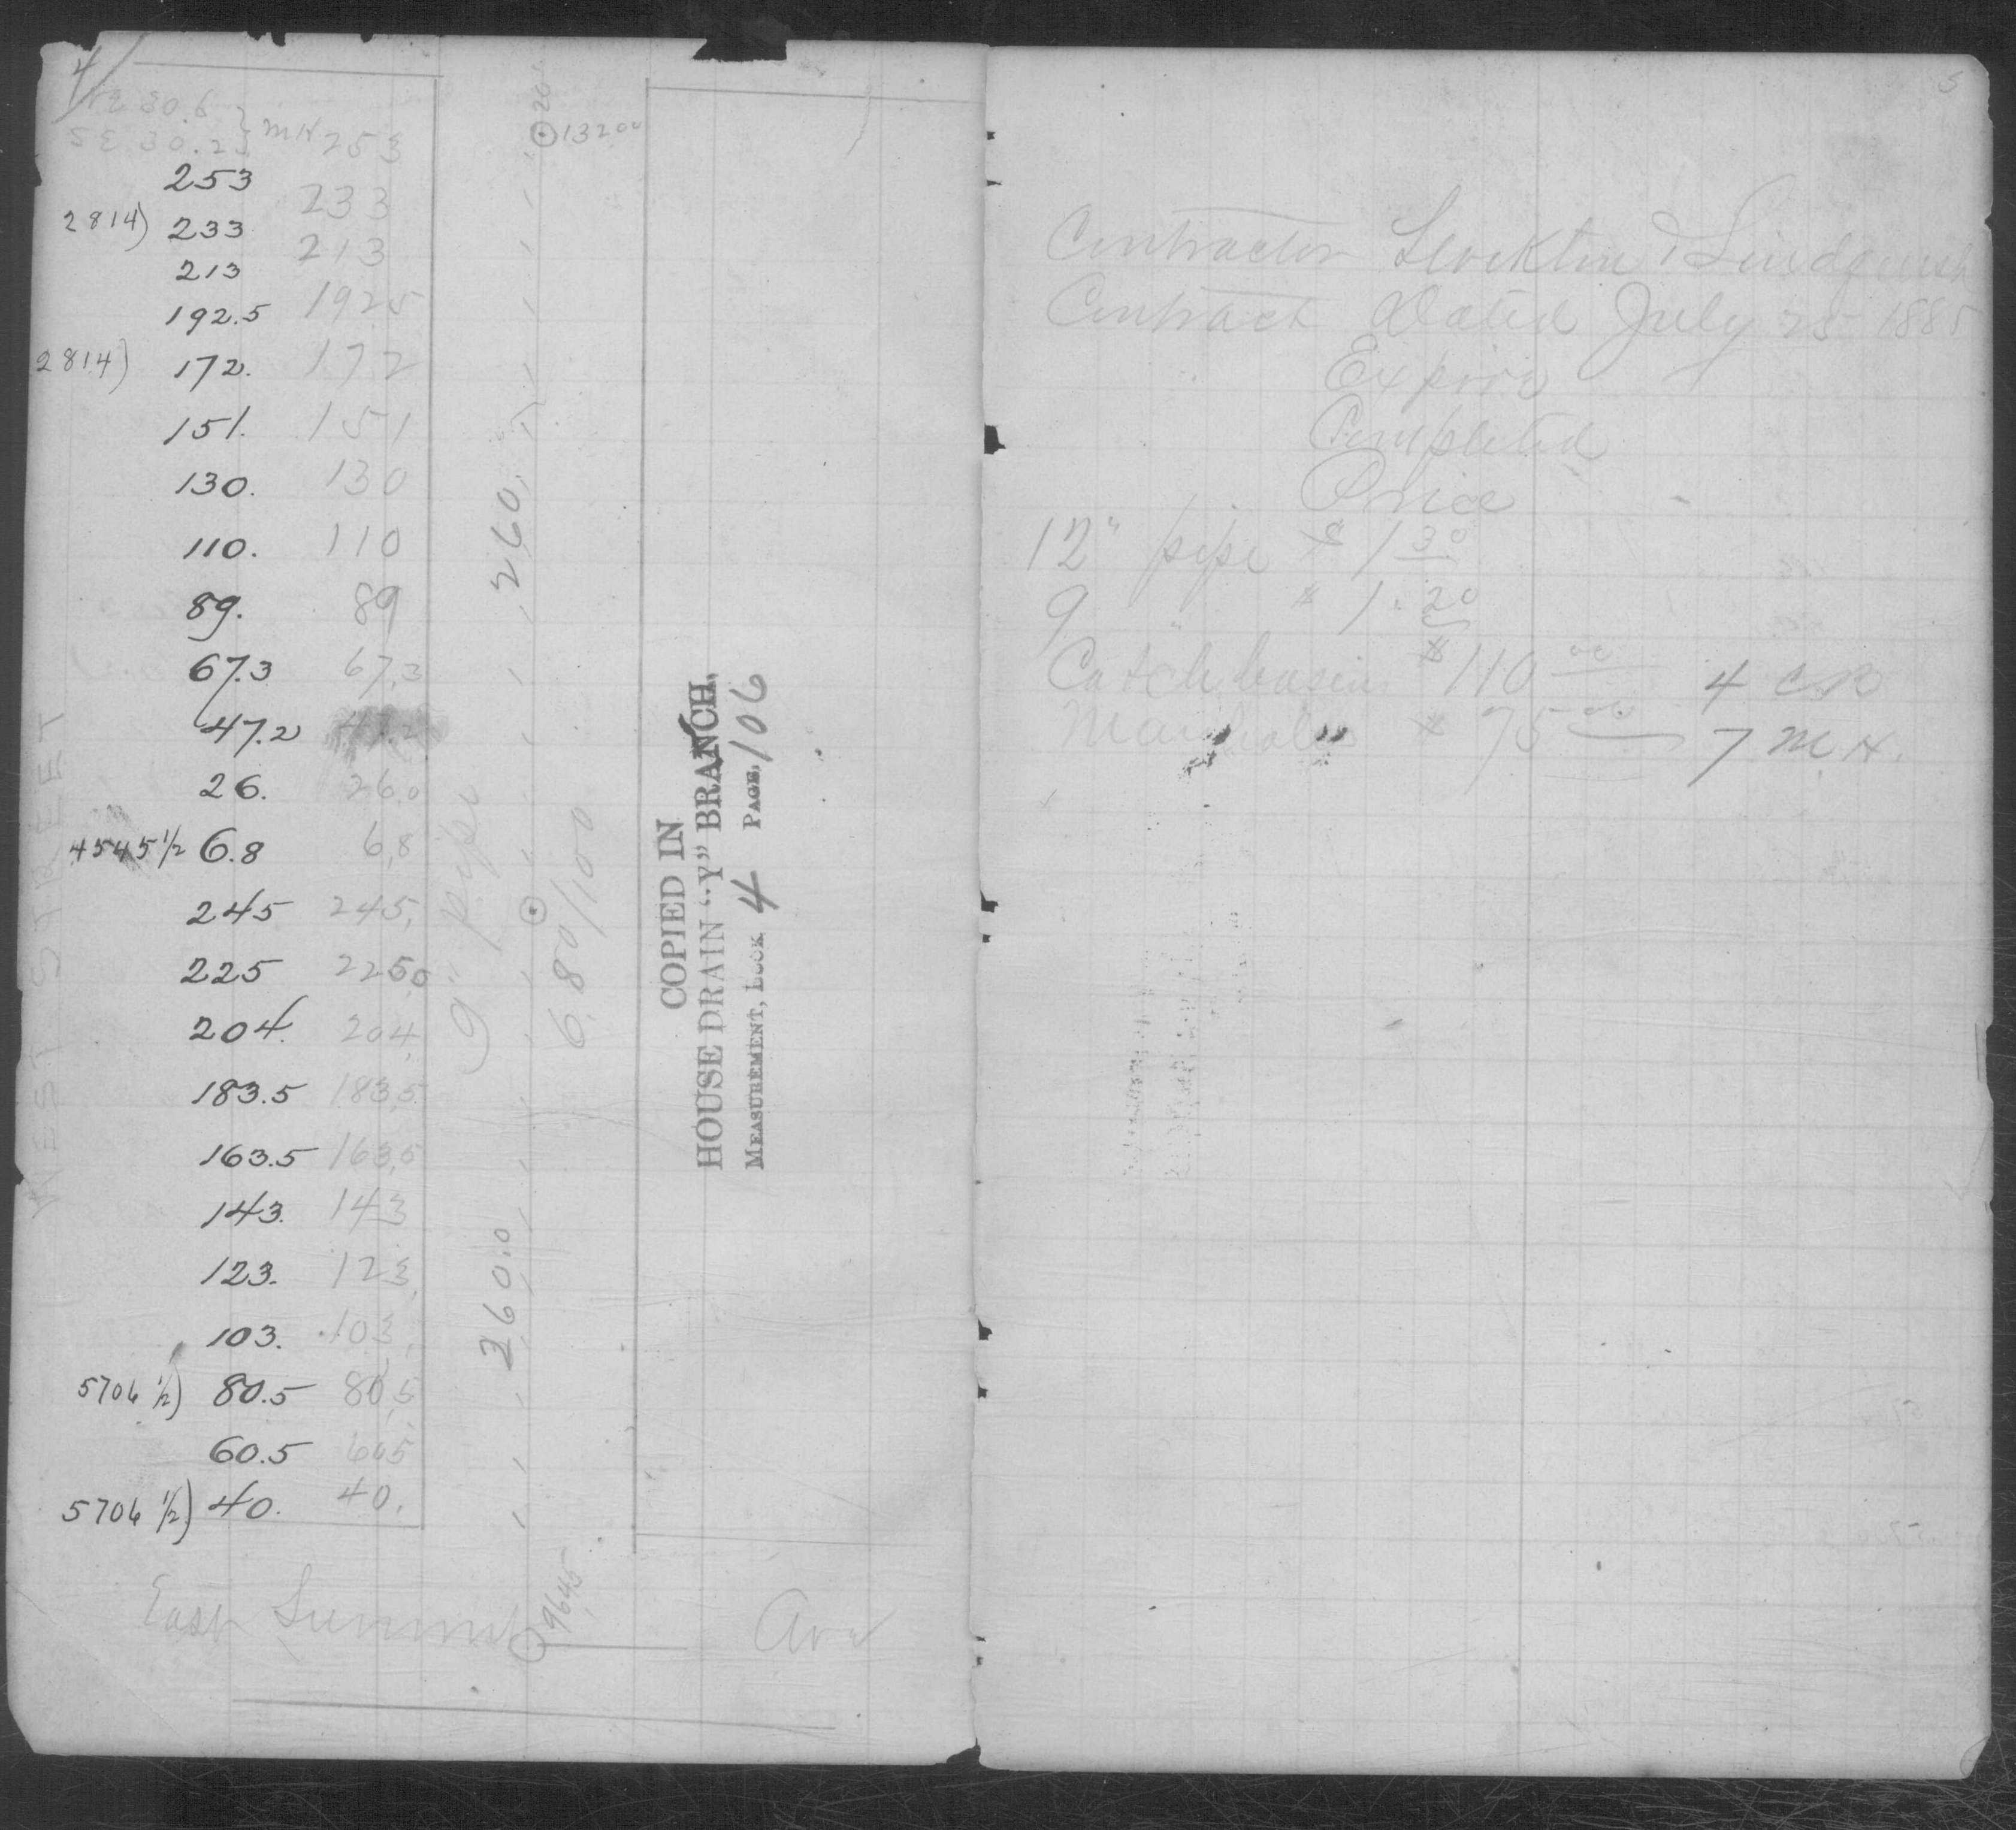 4
NE 30.6
SE 30.2 } MH 253
253
2814) 233 233
213 213
192.5 192.5
2814) 172. 172
151. 151
130. 130
110. 110
89. 89
67.3 67.3
47.2 47.2
26. 26.0
4545 1/2 6.8 6.8
245 245.
225 225.0
204. 204.
183.5 183.5
163.5 163.5
143. 143
123. 123.
103. 103.
5706 1/2) 80.5 80.5
60.5 60.5
5706 1/2) 40. 40.
WEST STREET
260.
9" pipe
260.0
26
13200
6.80/100
9645
East Summit Ave
COPIED IN
HOUSE DRAIN "Y" BRANCH,
MEASUREMENT, BOOK 4 PAGE, 106
5
Contractor Stockton &
Contract Dated July 25 1885
Expire
Completed
Price
12" pipe $ 1 30
9 " $ 1. 20
Catchbasins $ 40 00 4 CB
Manholes $ 75 00 7 MH.